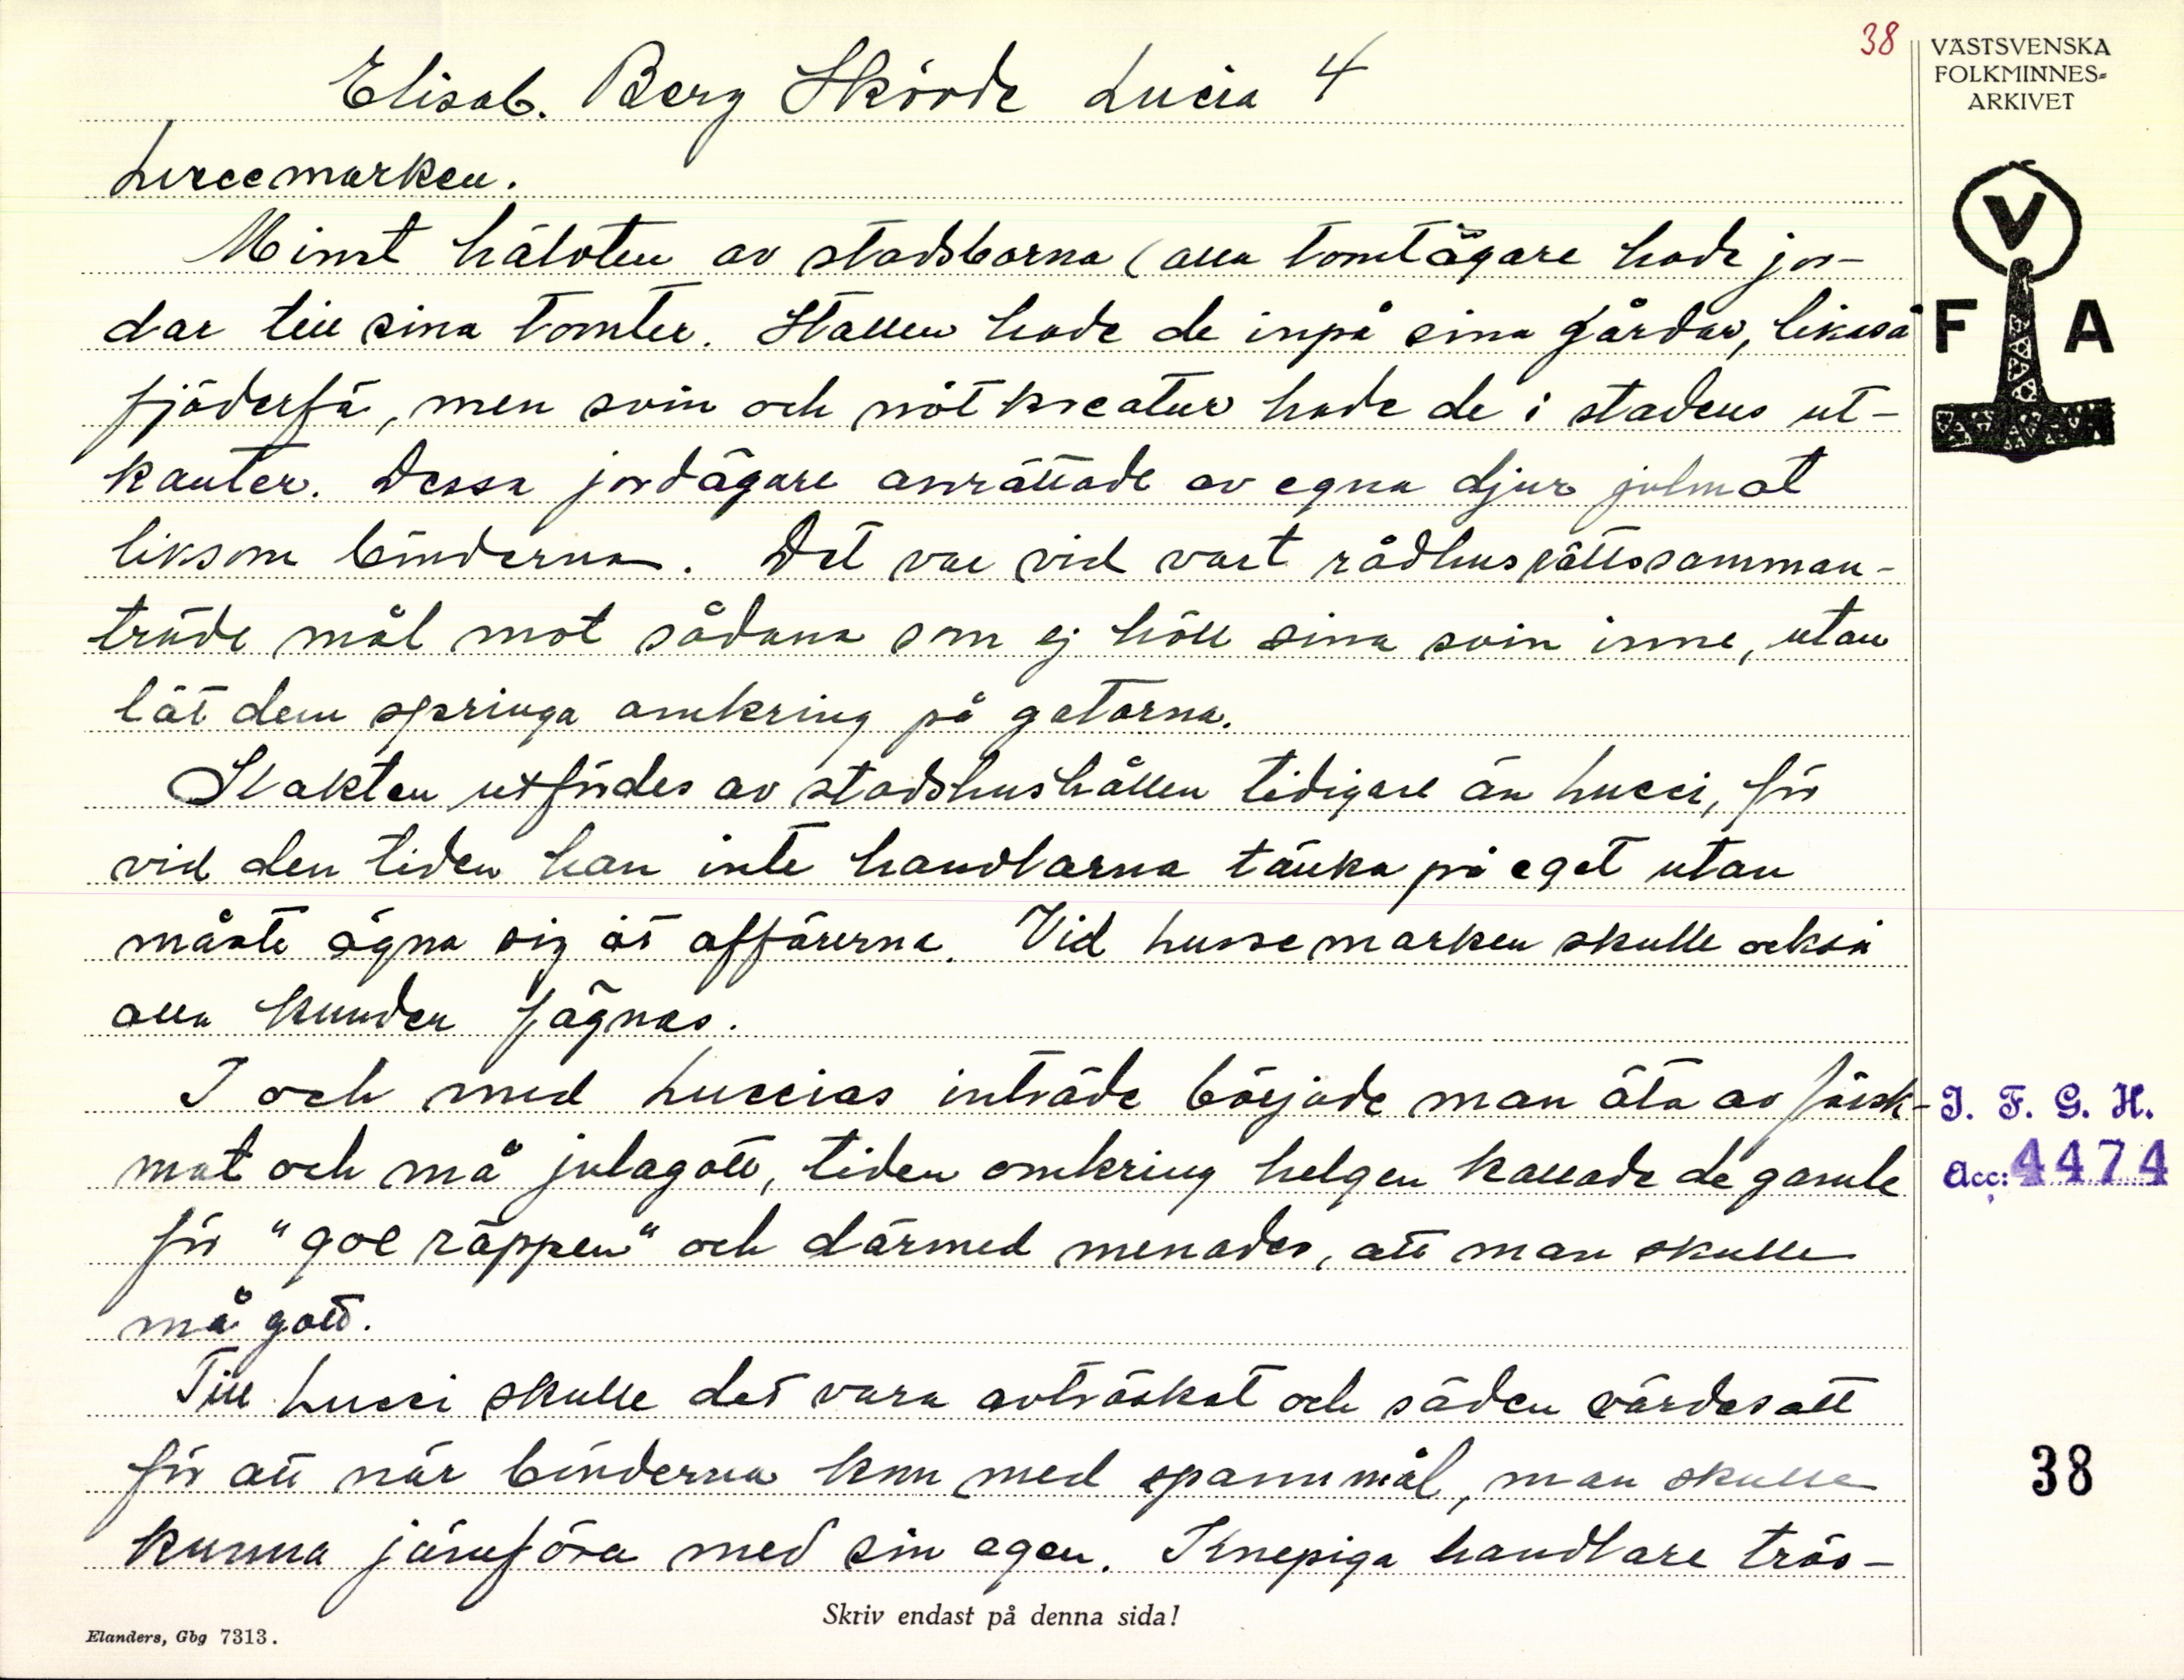 38
VÄSTSVENSKA
FOLKMINNES-
ARKIVET
Elisab. Berg Skövde Lucia 4
V
F A
Lussemarken.
Minst hälvten av stadsborna (alla tomtägare hade jor-
dar till sina tomter. Stallen hade de inpå sina gårdar, likaså
fjäderfä, men svin och nötkreatur hade de i stadens ut-
kanter. Dessa jordägare anrättade av egna djur julmat
liksom bönderna. Det var vid vart rådhusrättssamman-
träde mål mot sådana som ej höll sina svin inne, utan
lät dem springa omkring på gatorna.
Slakten utfördes av stadshushållen tidigare än Lussi, för
vid den tiden han inte handlarna tänka på eget utan
måste ägna sig åt affärerna. Vid Lussemarken skulle också
alla kunder fägnas.
I och med Luccias inträde började man äta av färsk-
mat och må julagott, tiden omkring helgen kallade de gamle
för "goe räppen" och därmed menades, att man skulle
må gott.
Till Lussi skulle det vara avtröskat och säden värdesatt
för att när bönderna kom med spannmål, man skulle
kunna jämföra med sin egen. Knepiga handlare trös-
I. F. G. H.
Acc: 4474
38
Skriv endast på denna sida!
Elanders, Gbg 7313.